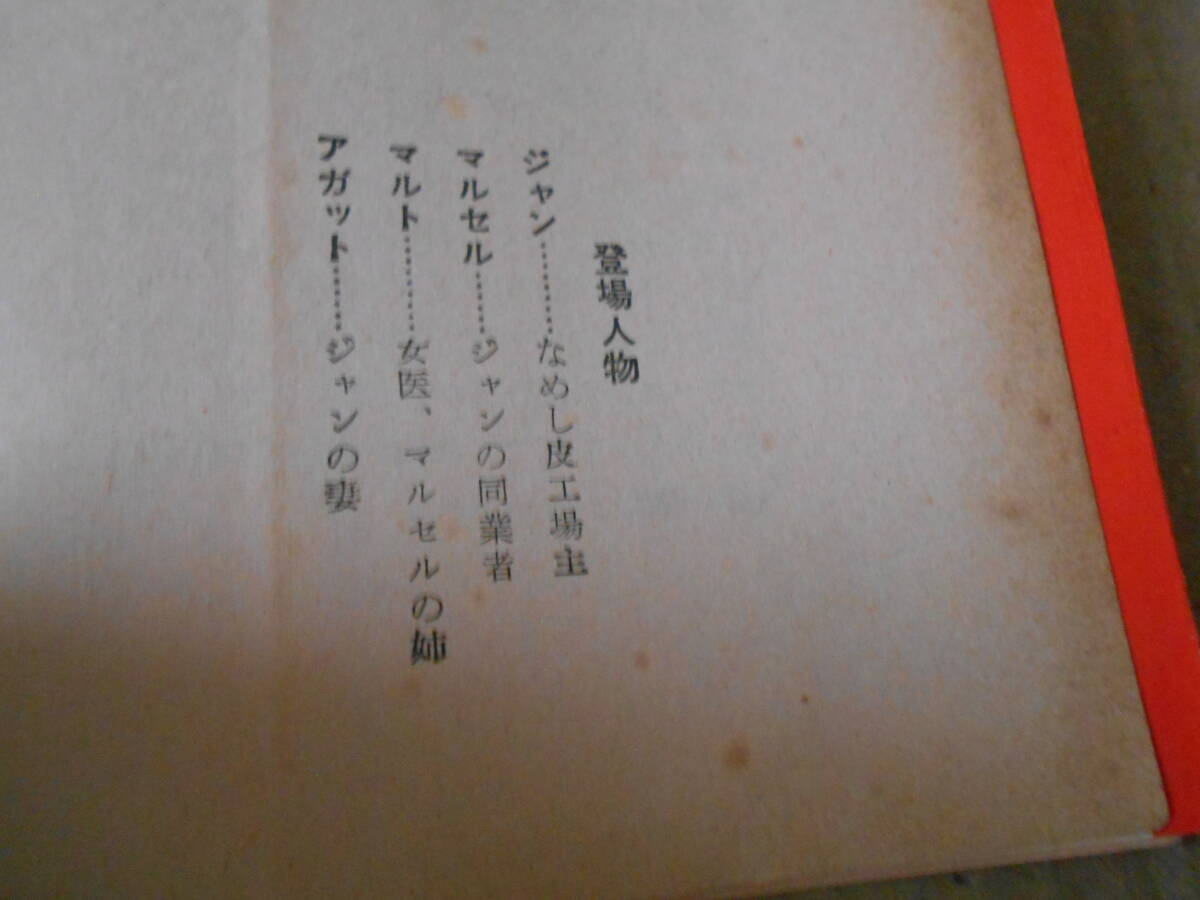 登場人物
ジャン…………なめし皮工場主
マルセル………ジャンの同業者
マルト…………女医、マルセルの姉
アガット………ジャンの妻